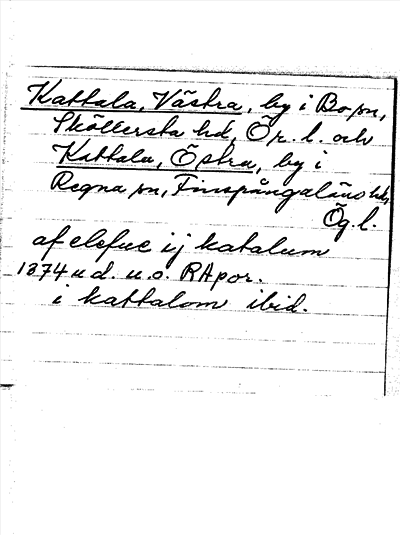 Kattala, Västra, by i Bo sn,
Sköllersta hd, Ör. l. och
Kattala, Östra, by i
Regna sn, Finspångaläns hd,
Ög. l.
af elefue i ij katalum
1374 u d. u. o. RApor.
i kattalom ibid.